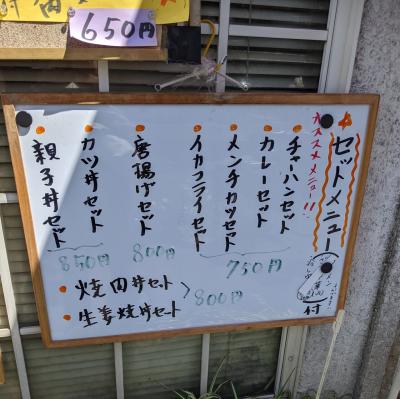 650円
セットメニュー
オススメメニュー!!
チャーハンセット
カレーセット
メンチカツセット
イカフライセット
750円
唐揚げセット
800円
カツ丼セット
親子丼セット
850円
焼肉丼セット
生姜焼丼セット
800円
付